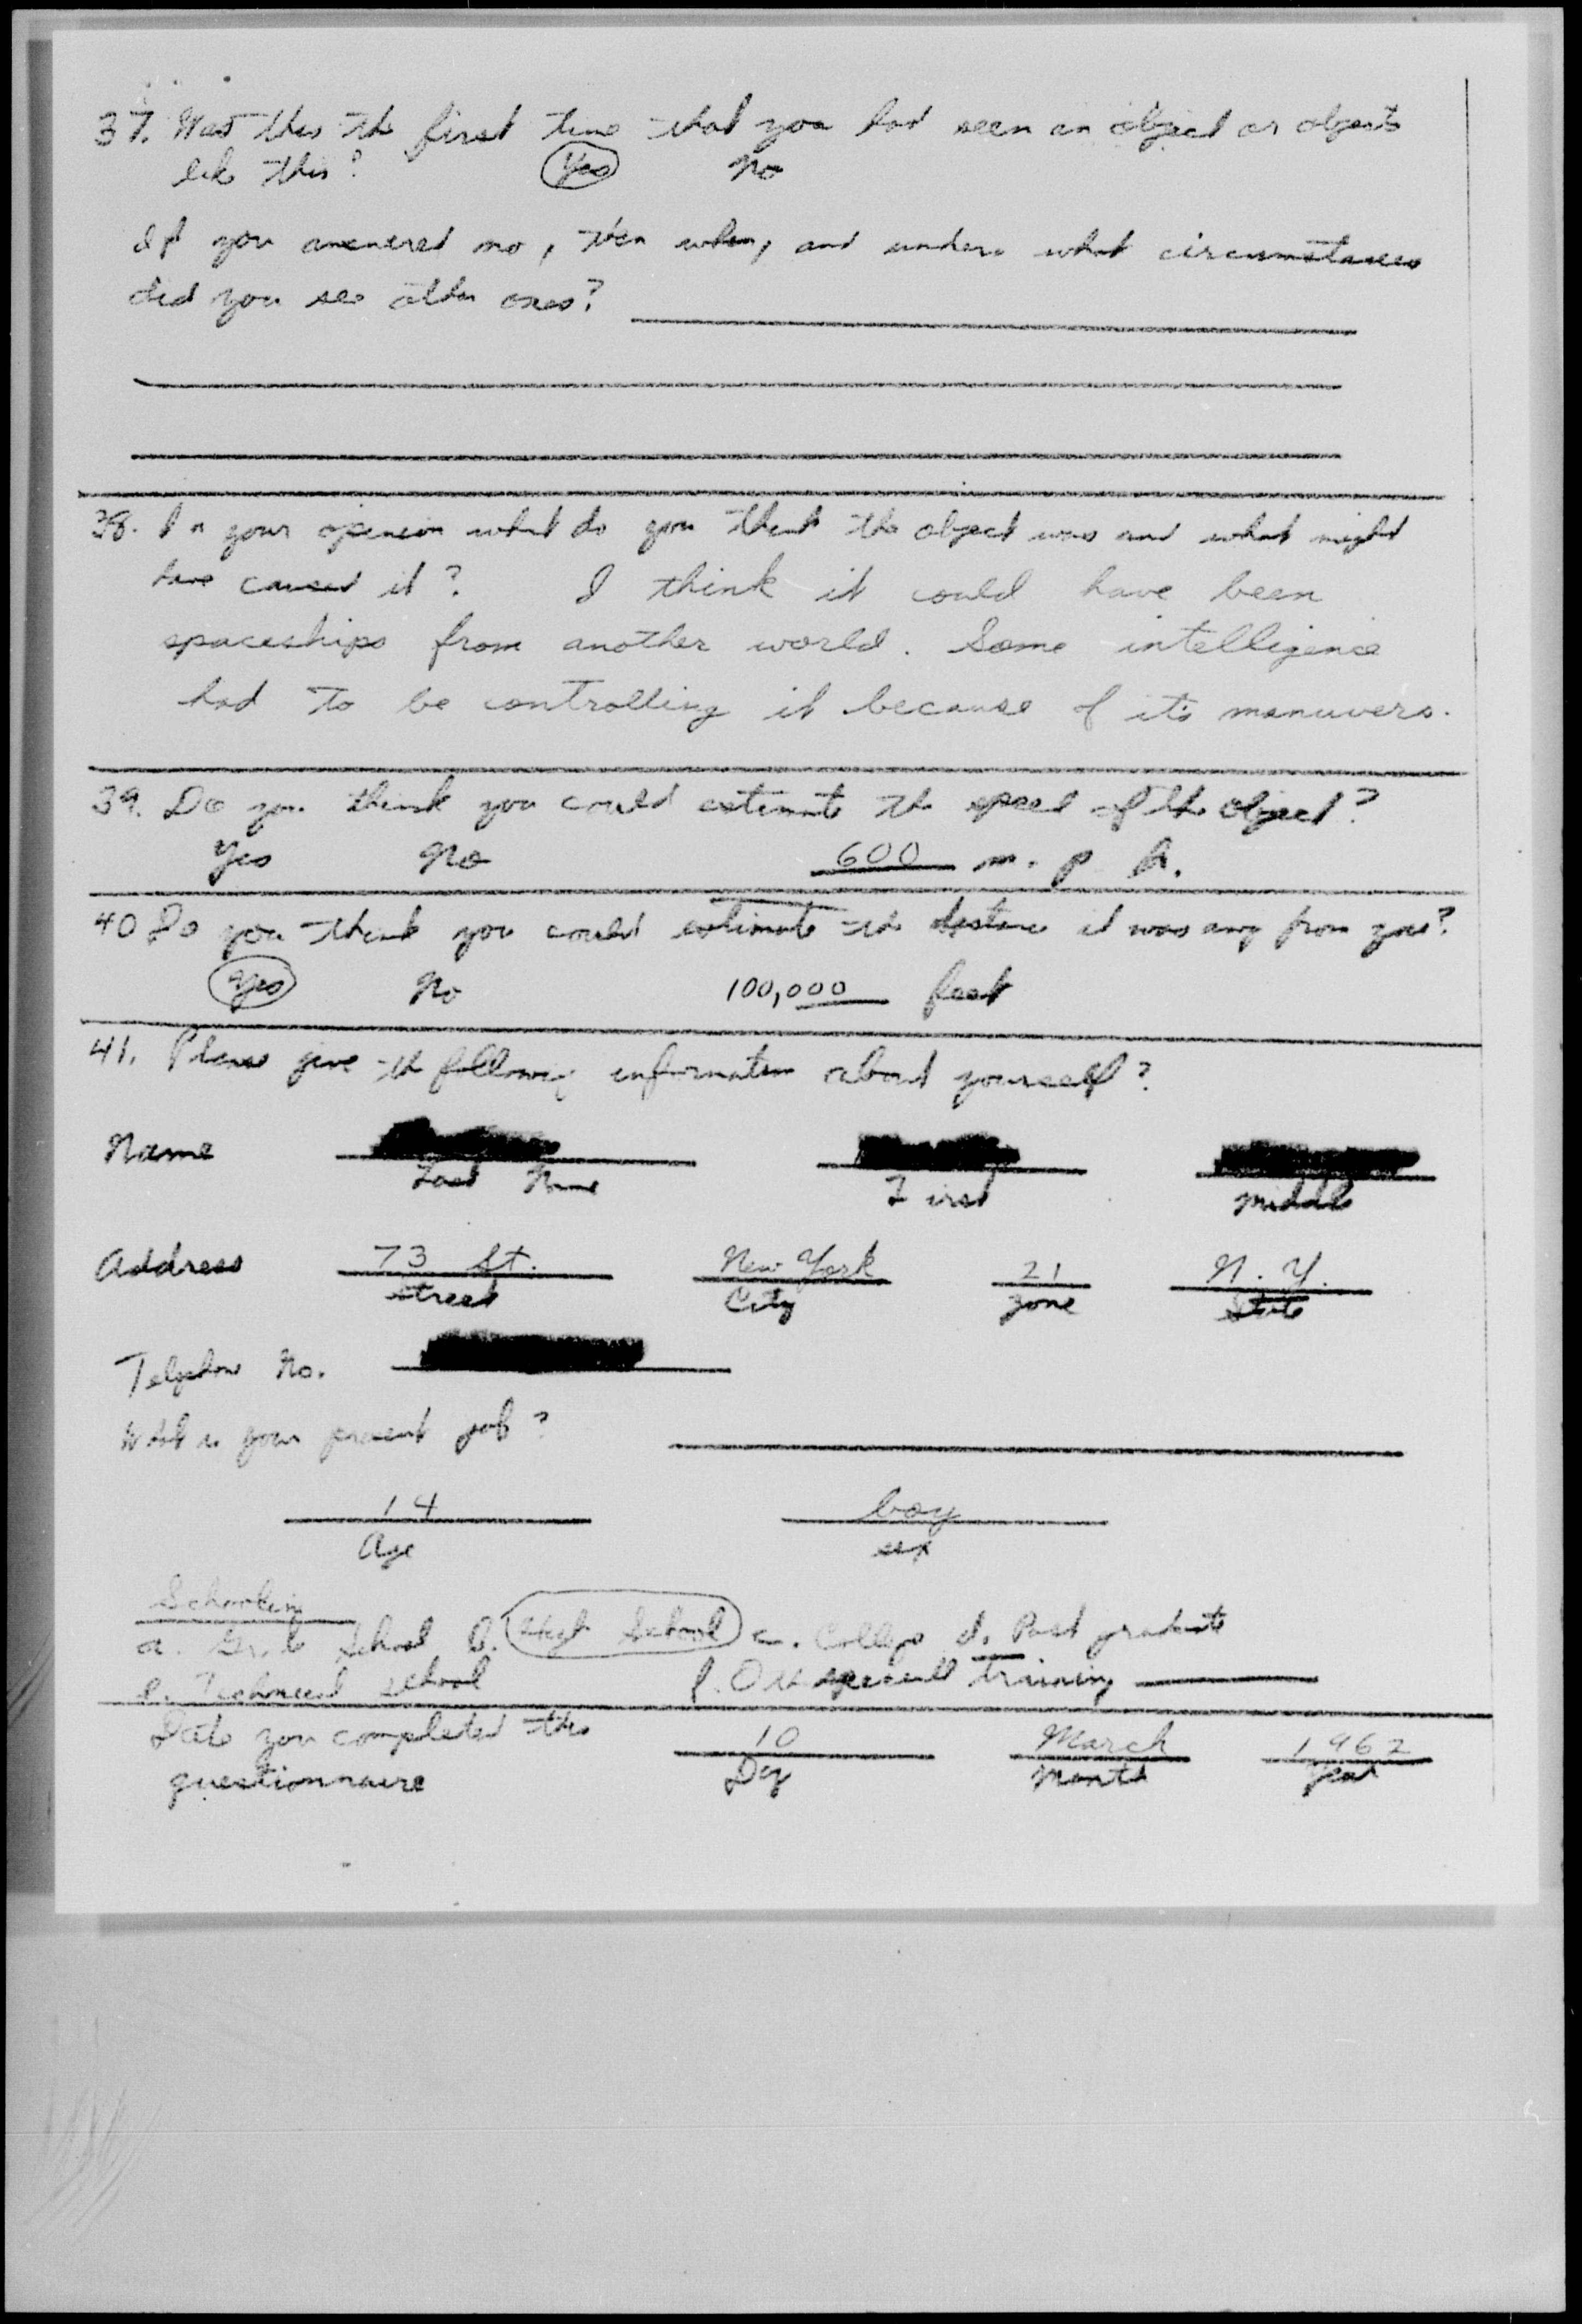 37. Was this the first time that you had seen an object or objects
like this? Yes No
If you answered no, then when, and under what circumstances
did you see other ones?
38. In your openion what do you think the object was and what might
have caused it? I think it could have been
spaceships from another world. Some intelligence
had to be controlling it because of it's manuvers.
39. Do you think you could estimate the speed of the object?
Yes No 600 m. p h.
40 Do you think you could estimate the distance it was away from you?
Yes No 100,000 feet
41. Please give the following information about yourself?
Name
Last Name First Middle
Address 73 St. New York 21 N. Y.
Street City Zone State
Telephone No.
What is your present job?
14 boy
Age sex
Schooling
a. Grade School b. High School c. College d. Post graduate
e. Technical school f. Other special training
Date you completed this 10 March 1962
questionnaire Day Month Year